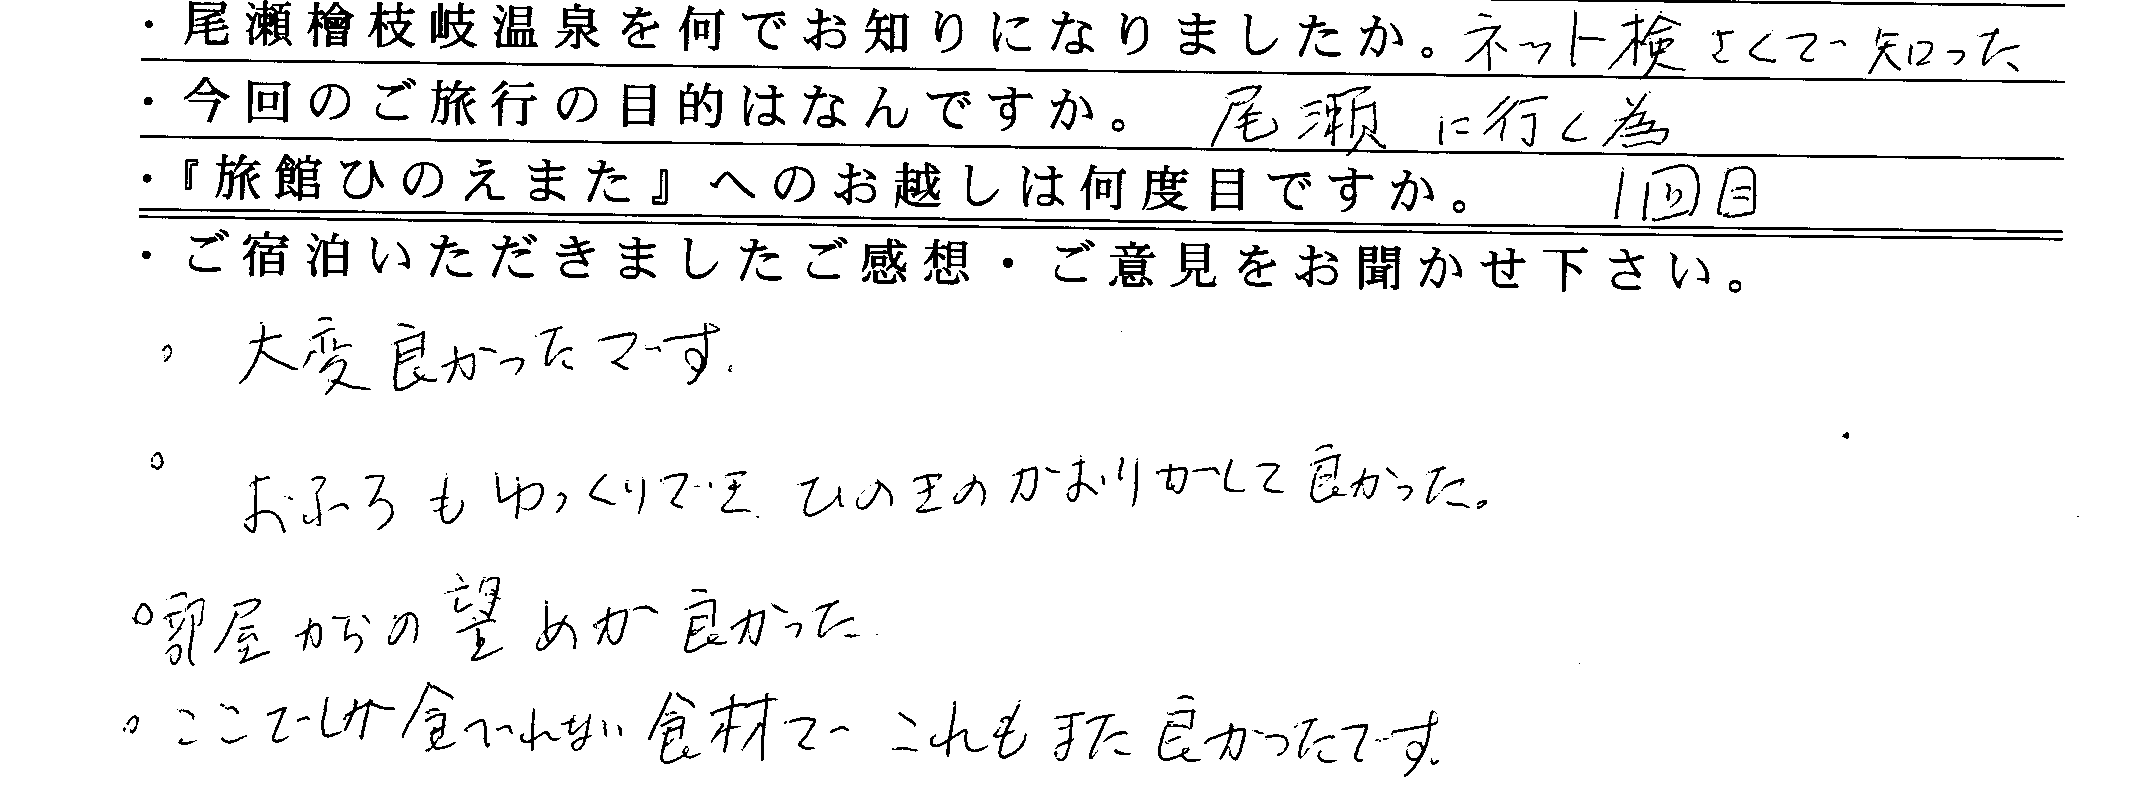 ・尾瀬檜枝岐温泉を何でお知りになりましたか。ネット検さくで知った
・今回のご旅行の目的はなんですか。 尾瀬に行く為
・『旅館ひのえまた』へのお越しは何度目ですか。 1回目
・ご宿泊いただきましたご感想・ご意見をお聞かせ下さい。
。大変良かったです.
。おふろもゆっくりでき ひのきのかおりがして良かった。
。部屋からの望めが良かった
。ここでしか食べれない食材で これもまた良かったです.